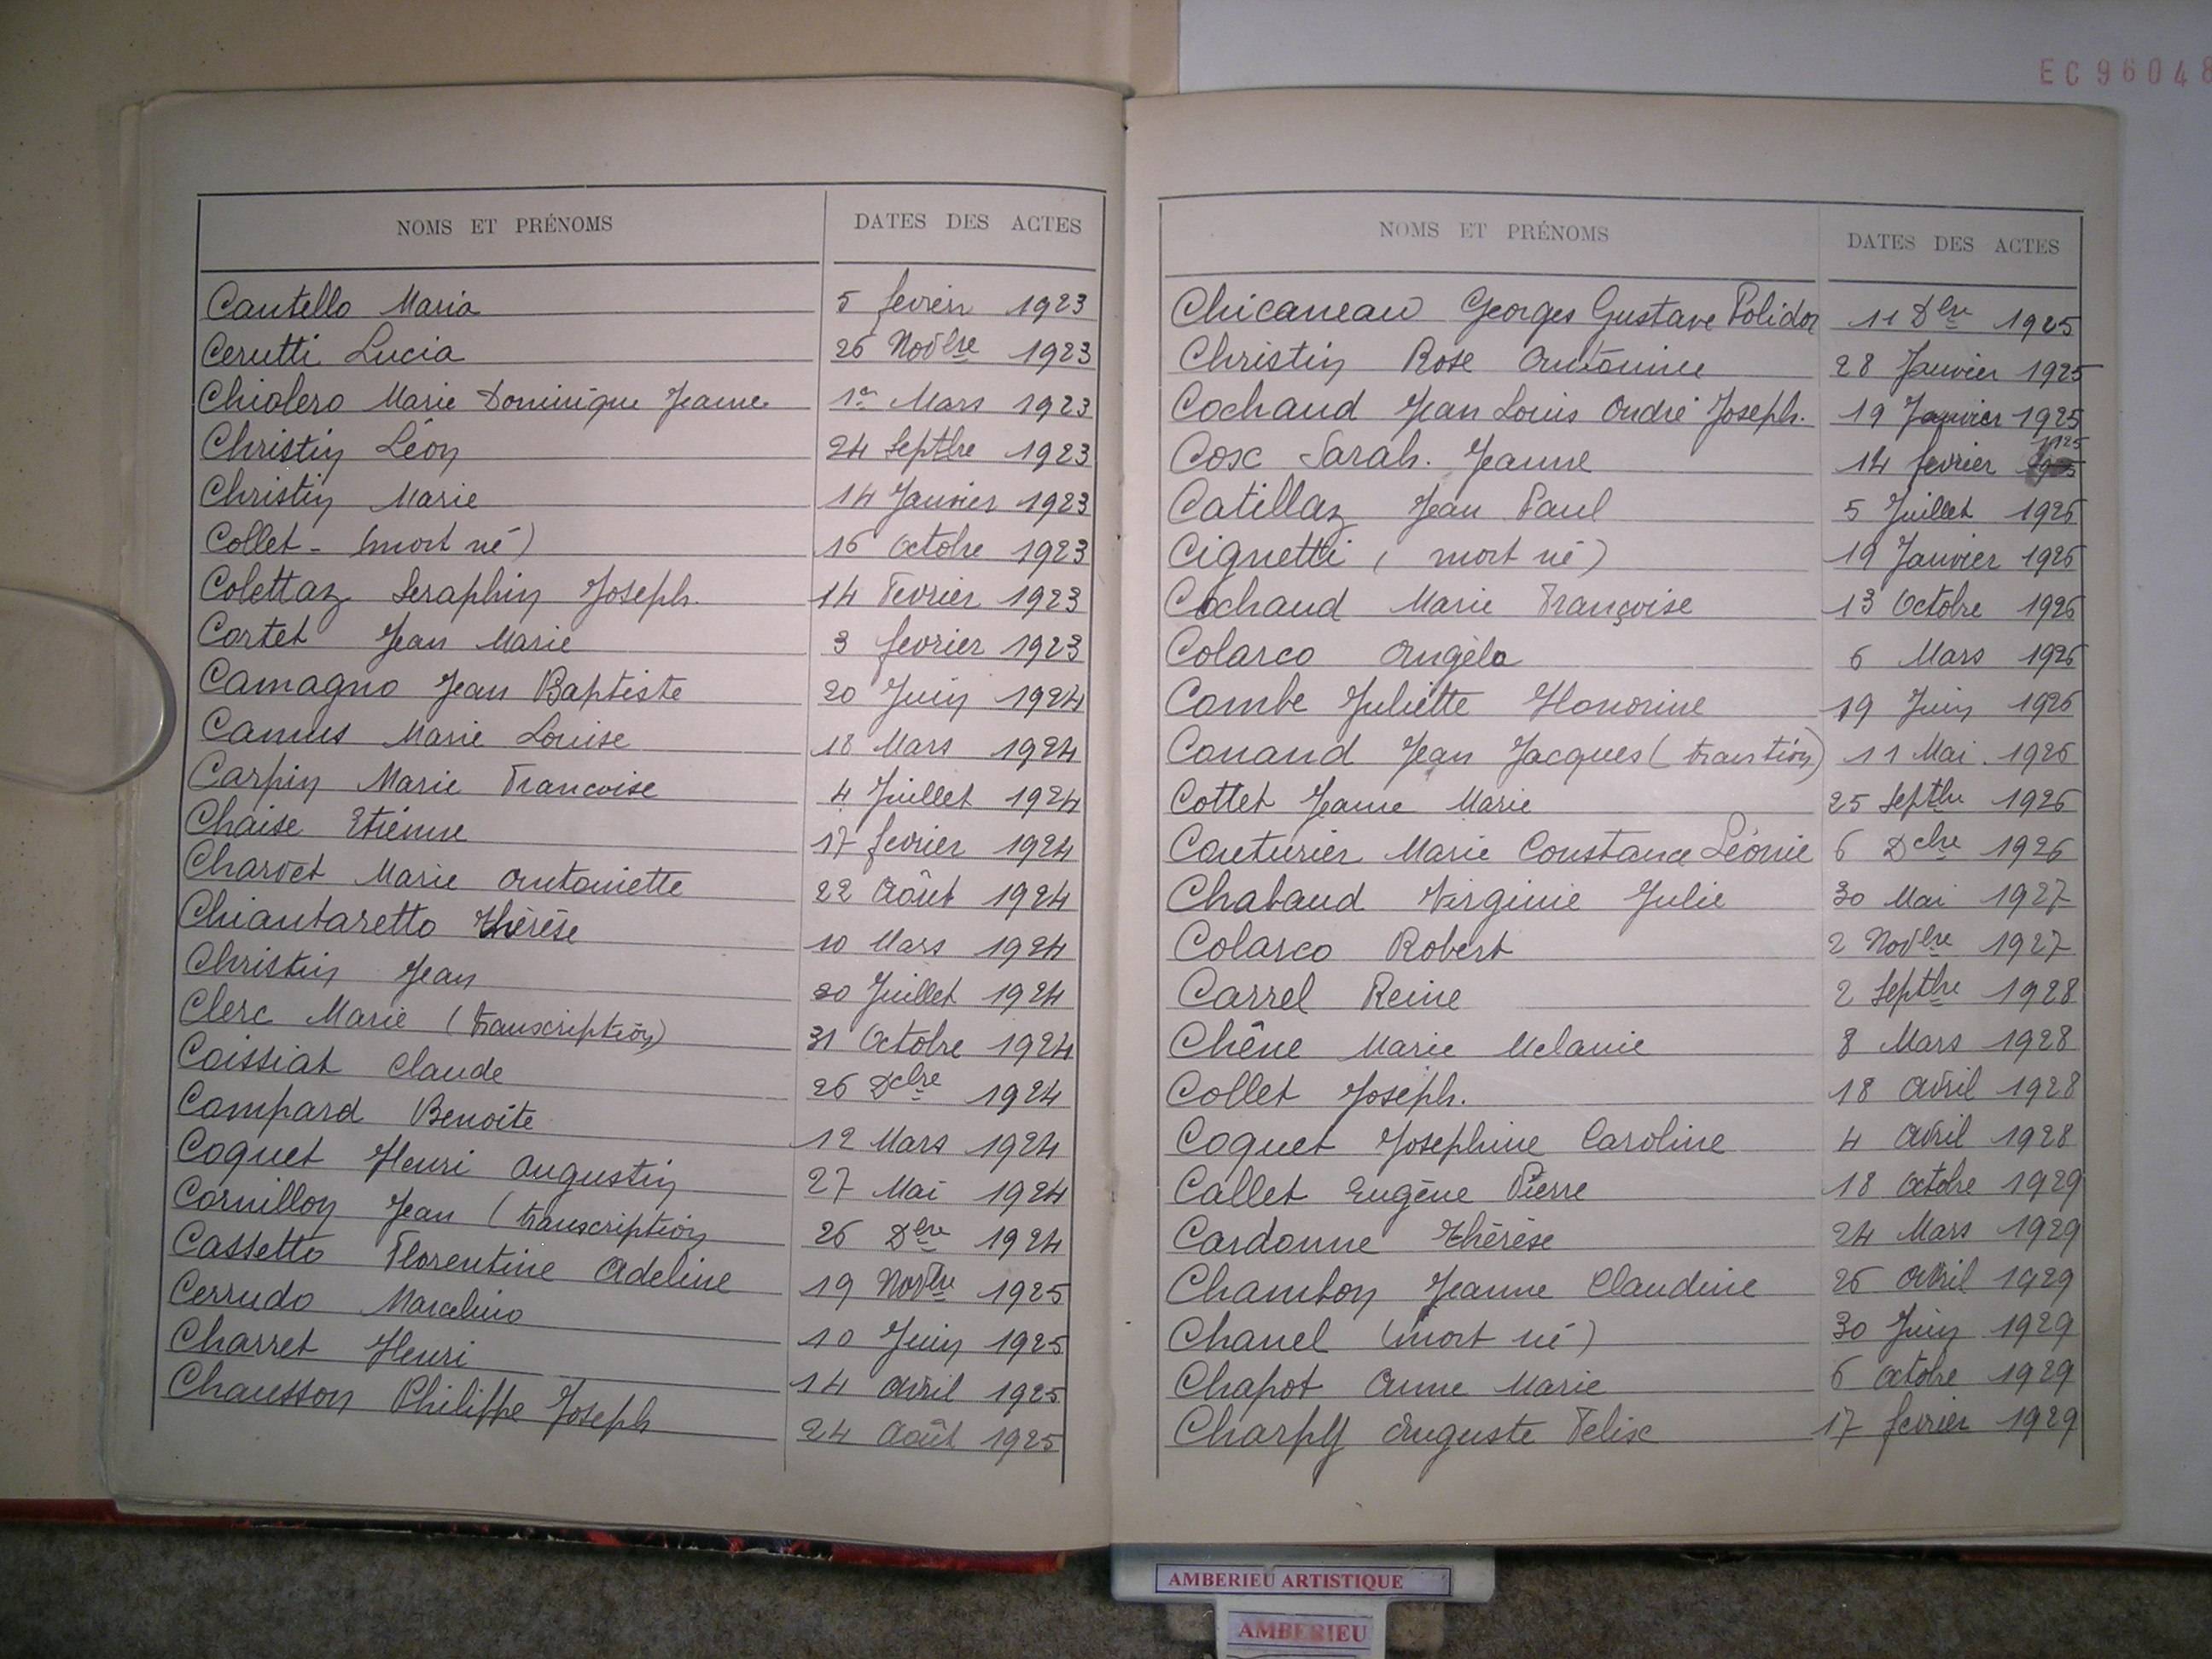 EC96048
NOMS ET PRÉNOMS DATES DES ACTES
Cautello Maria 5 fevrier 1923
Cerutti Lucia 26 Novbre 1923
Chiolero Marie Dominique Jeanne 1er Mars 1923
Christin Léon 24 Septbre 1923
Christin Marie 14 Janvier 1923
Collet - (mort né) 16 Octobre 1923
Colettaz Seraphin Joseph. 14 Fevrier 1923
Cortet Jean Marie 3 fevrier 1923
Camagno Jean Baptiste 20 Juin 1924
Camus Marie Louise 18 Mars 1924
Carpin Marie Francoise 4 Juillet 1924
Chaise Etienne 17 fevrier 1924
Charvet Marie Antoniette 22 Août 1924
Chiantaretto Thérèse 10 Mars 1924
Christin Jean 20 Juillet 1924
Clerc Marie (transcription) 31 Octobre 1924
Coissiat Claude 26 Dcbre 1924
Compard Benoite 12 Mars 1924
Coquet Henri Augustin 27 Mai 1924
Cornillon Jean (transcription 26 Dbre 1924
Cassetto Florentine Adeline 19 Novbre 1925
Cerrudo Marcelino 10 Juin 1925
Charret Henri 14 Avril 1925
Chausson Philippe Joseph 24 Août 1925
NOMS ET PRÉNOMS DATES DES ACTES
Chicaneau Georges Gustave Polidor 11 Dbre 1925
Christin Rose Antonine 28 Janvier 1925
Cochaud Jean Louis André Joseph. 19 Janvier 1925
Cosc Sarah. Jeanne 14 fevrier 1925
Catillaz Jean Paul 5 Juillet 1926
Cignetti (mort né) 19 Janvier 1926
Cochaud Marie Françoise 13 Octobre 1926
Colarco Angèla 6 Mars 1926
Combe Juliette Honorine 19 Juin 1926
Conand Jean Jacques (transtion) 11 Mai 1926
Cottet Jeanne Marie 25 Septbre 1926
Couturier Marie Constance Léonie 6 Dcbre 1926
Chabaud Virginie Julie 30 Mai 1927
Colarco Robert 2 Novbre 1927
Carrel Reine 2 Septbre 1928
Chêne Marie Melanie 8 Mars 1928
Collet Joseph. 18 Avril 1928
Coquet Josephine Caroline 4 Avril 1928
Callet Eugène Pierre 18 Octobre 1929
Cardonne Thérèse 24 Mars 1929
Chambon Jeanne Claudine 26 Avril 1929
Chanel (mort né) 30 Juin 1929
Chapot Anne Marie 6 Octobre 1929
Charpy Auguste Felix 17 fevrier 1929
AMBERIEU ARTISTIQUE
AMBERIEU